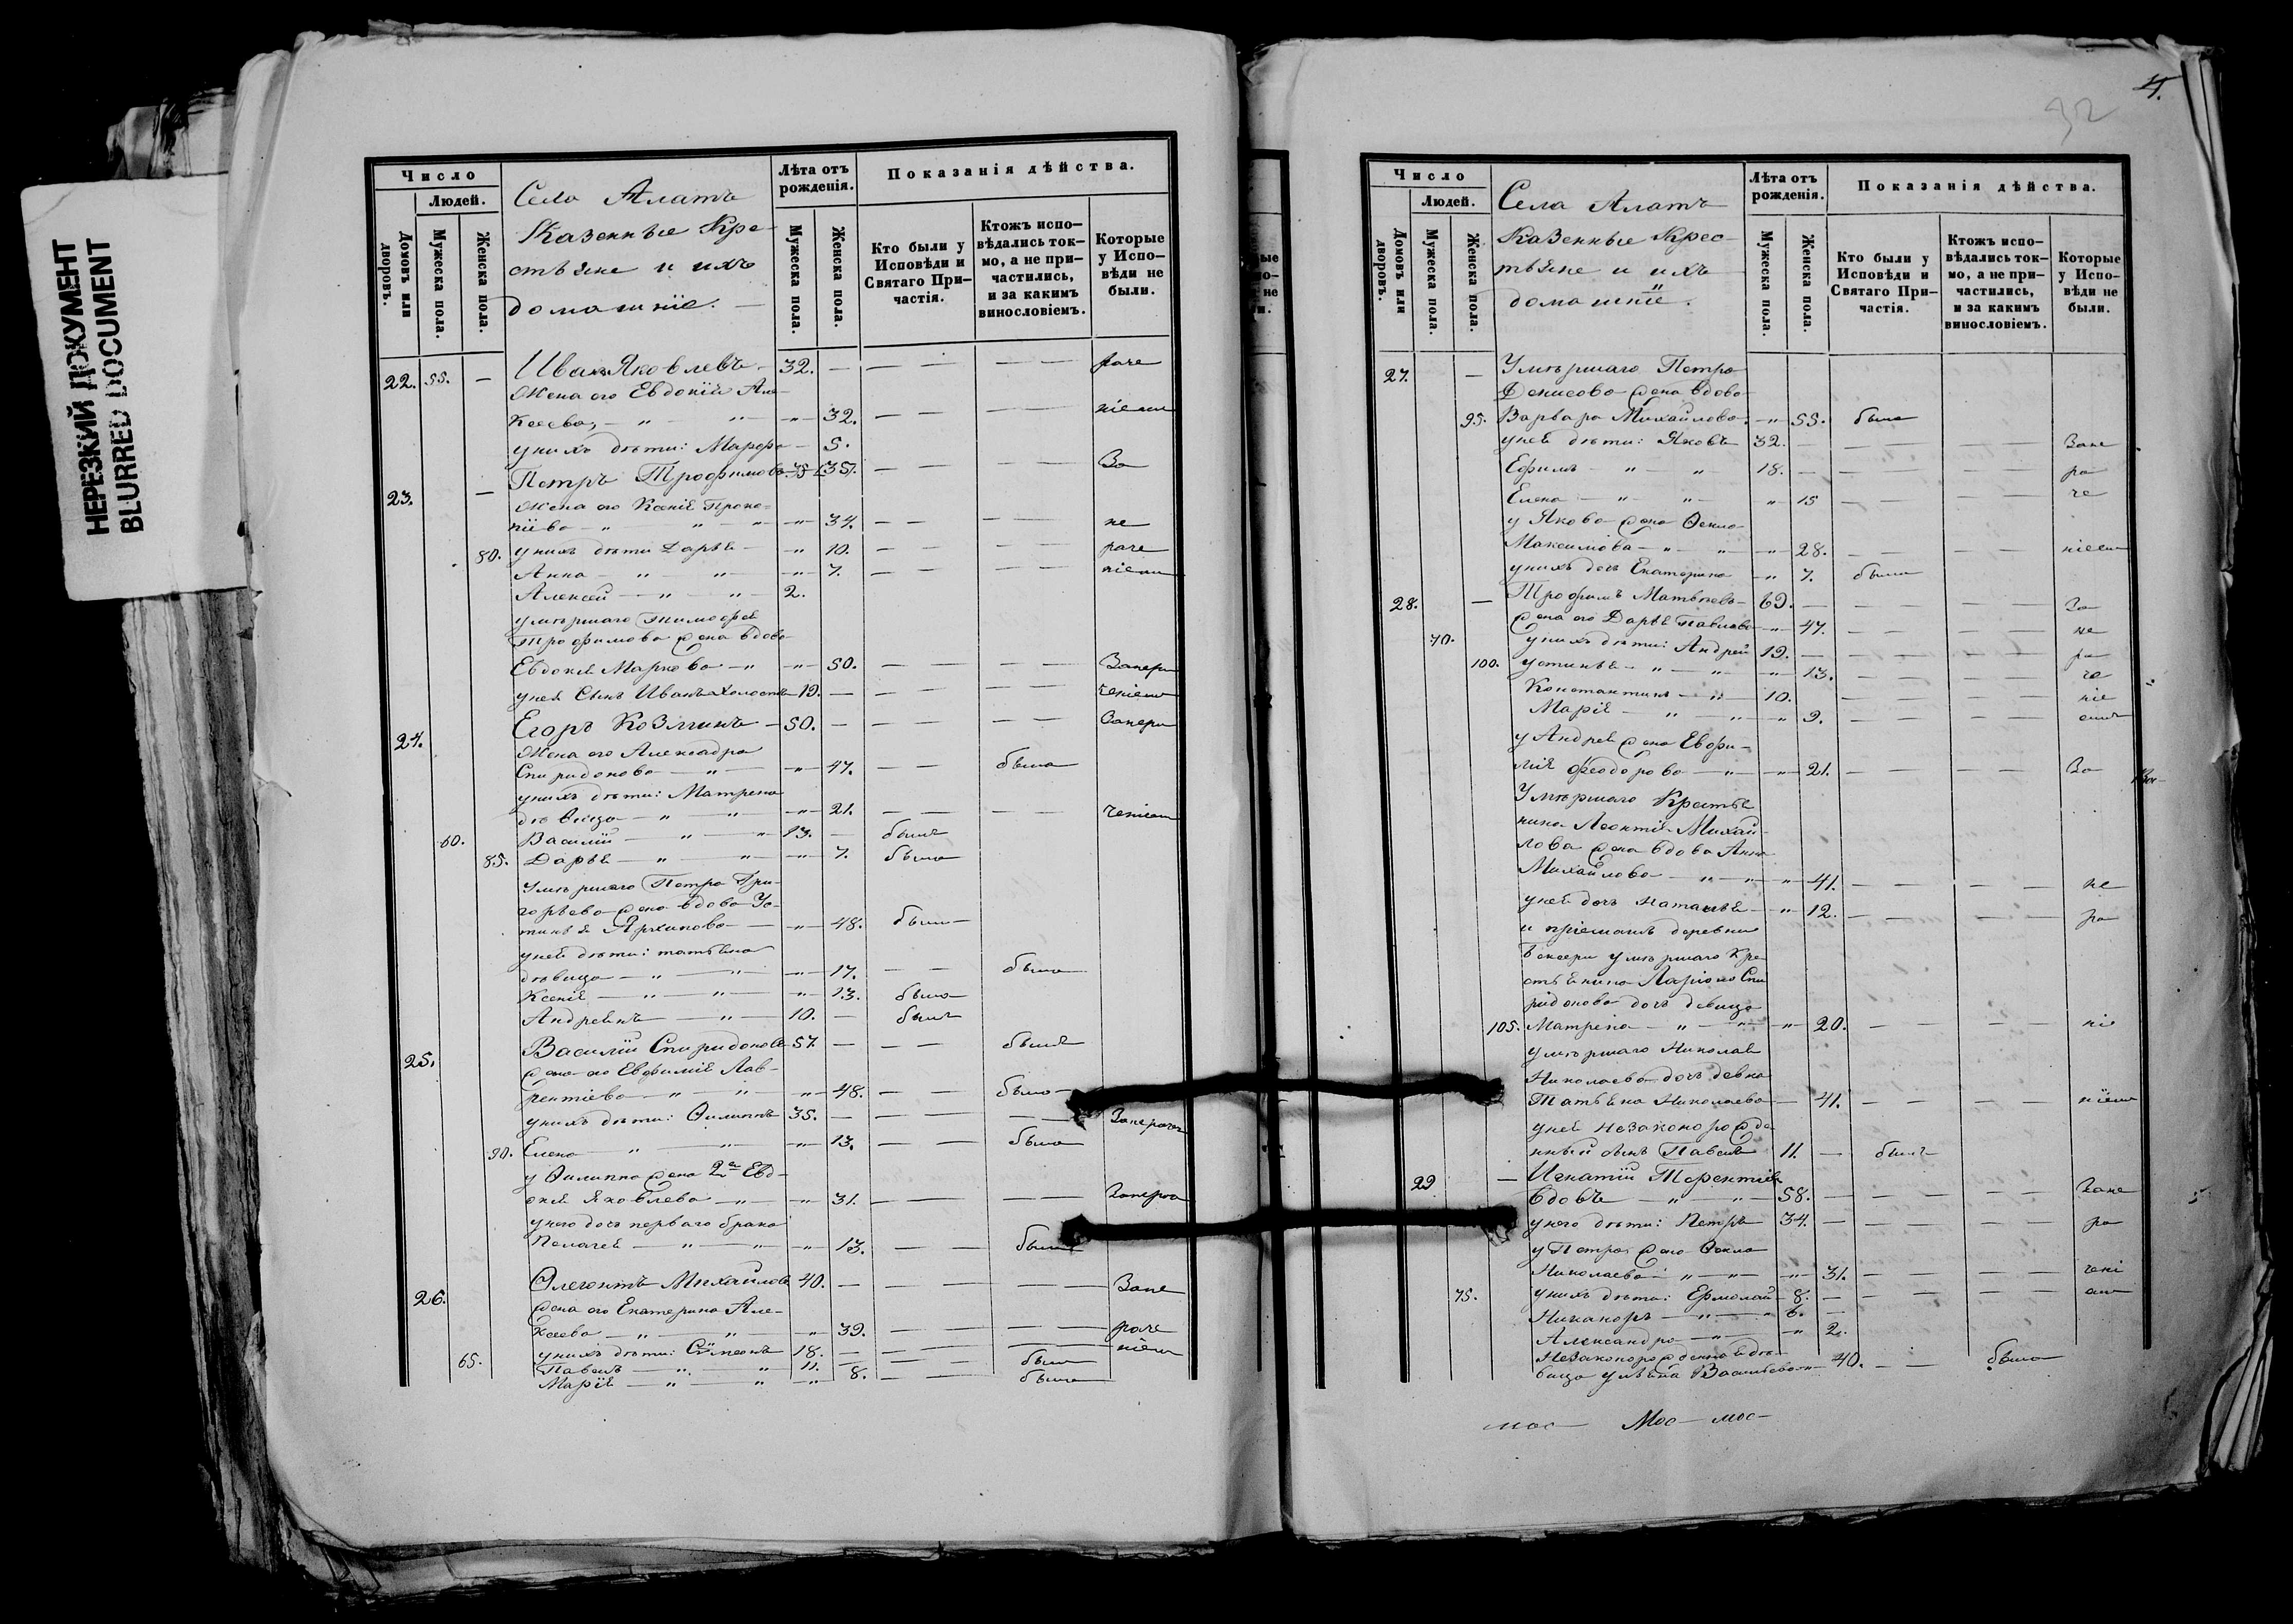 НЕРЕЗКИЙ ДОКУМЕНТ
BLURRED DOCUMENT
Число
Людей.
Домовъ или дворовъ.
Мужеска пола.
Женска пола.
Село Алатъ
Казенные Кре-
стьяне и ихъ
домашніе.
Лѣта отъ рожденія.
Мужеска пола.
Женска пола.
Показанія дѣйства.
Кто были у Исповѣди и Святаго При-частія.
Ктожъ испо-вѣдались ток-мо, а не при-частились, и за какимъ винословіемъ.
Которые у Испо-вѣди не были.
22. 55. — Иван Яковлевъ 32. — — — — — раче
Жена его Евдокія Але-
ксеева — " — " — 32. — — — — ніем
у нихъ дѣти: Марфа — 5.
23. — Петръ Трофимовъ 35. — — — — За
Жена его Ксенія Проко-
піева — " — " — 34. — — — — не
80. у нихъ дѣти Дарья — " 10. — — — — раче
Анна — " — " — 7. — — — — ніем
Алексей — " — " — 2.
умершаго Тимофея
Трофимова жена вдова
Евдокія Маркова — " — 50. — — — Занера
у нея Сынъ Иванъ холостъ 19. — — — — — ченіем
24. Егоръ Козминъ — 50. — — — — — Занера
Жена его Александра
Спиридонова — " — 47. — — была
у нихъ дѣти: Матрена
дѣвица — " — " — 21. — — — — ченіем
60. Василій — " — " 13. — былъ
85. Дарья — " — " — 7. была
умершаго Петра Гри-
горьева жена вдова Ус-
тинья Архипова — " — 48. была
у ней дѣти: татьяна
дѣвица — " — " — 17. — — была
Ксенія — " — " — 13. была
Андреянъ — " — 10. — былъ
25. Василій Спиридоновъ 57. — — — былъ
жена его Евфимія Лав-
рентіева — " — " — 48. — — была
у нихъ дѣти: Филиппъ 35. — — — — — Занерачен
90. Елена — " — " — 13. — — была
у Филиппа жена 2я Евд-
окія Яковлева — " — 31. — — — — Занера
у него дочь перваго брака
Пелагея — " — " — 13. — — была
26. Флегонтъ Михайловъ 40. — — — — — Зане
жена его Екатерина Але-
ксеева — " — " — 39. — — — — раче
у нихъ дѣти: Сѵмеонъ 18. — — — — — ніем
65. Павелъ — " — " 11. — — — былъ
Марія — " — " — 8. — — была
4.
32
Число
Людей.
Домовъ или дворовъ.
Мужеска пола.
Женска пола.
Села Алатъ
Казенные Крес-
тьяне и ихъ
домашніе.
Лѣта отъ рожденія.
Мужеска пола.
Женска пола.
Показанія дѣйства.
Кто были у Исповѣди и Святаго При-частія.
Ктожъ испо-вѣдались ток-мо, а не при-частились, и за какимъ винословіемъ.
Которые у Испо-вѣди не были.
27. — Умершаго Петра
Денисова жена вдова
95. Варвара Михайлова — " — 55. была
у ней дѣти: Яковъ 32. — — — — Зане
Ефимъ — " — " — 18. — — — — ра
Елена — " — " — " 15 — — — че
у Якова жена Фекла
Максимова — " — " — 28. — — — — ніем
у нихъ дочь Екатерина — " 7. была
28. — Трофимъ Матвѣевъ — 69. — — — — — За
жена его Дарья Павлова — " — 47. — — — — не
70. у нихъ дѣти: Андрей 19. — — — — ра
100. Устинья — " — " — 13. — — — — че
Константинъ — " — 10. — — — ніе
Марія — " — " — " 9. — — — — емъ
у Андрея жена Евфи-
мія Феодорова — " — " 21. — — — — За
Умершаго Крестья
нина Леонтія Михай-
лова жена вдова Анна
Михайлова — " — " — " 41. — — — — не
у ней дочь Наталья — " 12. — — — — ра
и пріемышъ деревни
умершаго Кре
стьянина Ларіона Спи
ридонова дочь дѣвица
105. Матрена — " — " — " 20. — — — — ніе
умершаго Николая
Николаева дочь девка
Татьяна Николаева — 41. — — — — ніем
у ней незаконорожде
нный сынъ Павелъ 11. — былъ
29 — Игнатій Терентіевъ
вдовъ — " — " — 58. — — — — — Зане
у него дѣти: Петръ 34. — — — — — ра
у Петра жена Фекла
Николаева — " — " — " 31. — — — — чені
75. у нихъ дѣти: Ермолай 8. — — — — — ем
Никаноръ — " — " 6. —
Александра — " — " 2.
Незаконорожденная дѣ-
вица Васильева — 40. — — была
мос — Мос — мос —